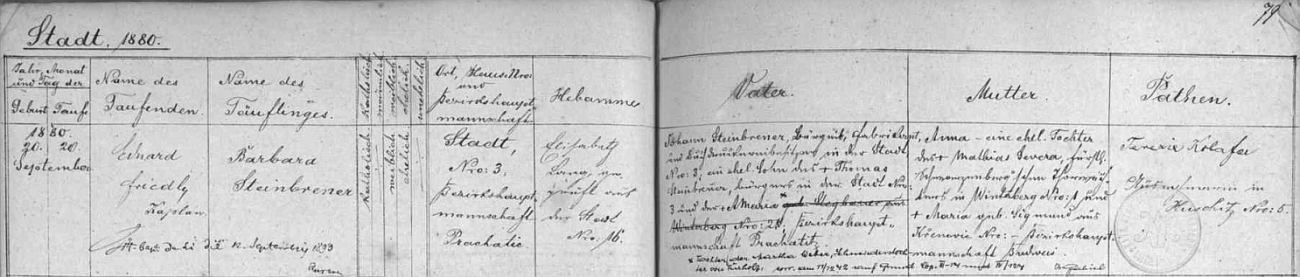 79
Stadt, 1880.
Jahr, Monat
und Tag der
Geburt Taufe
Name des
Taufenden.
Name des
Täuflinges.
Katholisch
männlich
weiblich
ehelich
unehelich
Ort, Haus-Nro:
und
Bezirkshaupt-
mannschaft
Hebamme
Vater.
Mutter.
Pathen.
1880.
20. 20.
September
Eduard
Friedly
Kaplan.
Barbara
Steinbrener
Katholisch
weiblich
ehelich
Stadt,
Nro: 3,
Bezirkshaupt-
mannschaft
Prachatic
Elisabeth
Lang, ge-
prüft aus
der Stadt
Nro: 16.
Johann Steinbrener, bürgerl. Fabrikant,
und Buchdruckereibesitzer in der Stadt
Nro: 3, ein ehel. Sohn des + Thomas
Steinbrener, bürgers in der Stadt Nro:
3 und der + Maria geb.
Winterberg Nro: Bezirkshaupt-
mannschaft Prachatitz
Anna - eine ehel. Tochter
des + Mathias Severa, fürstl.
Schwarzenberg'schen
in Winterberg Nro: 1 und
+ Maria geb. Sigmund aus
Křenovic Nro: - Bezirkshaupt-
mannschaft Budweis
Terezia Kolafa
Ausnehmerin in
Huschitz Nro: 5.
12. September 1899